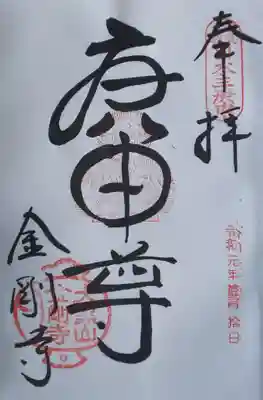 奉拝
庚申尊
令和元年
拾日
金剛寺